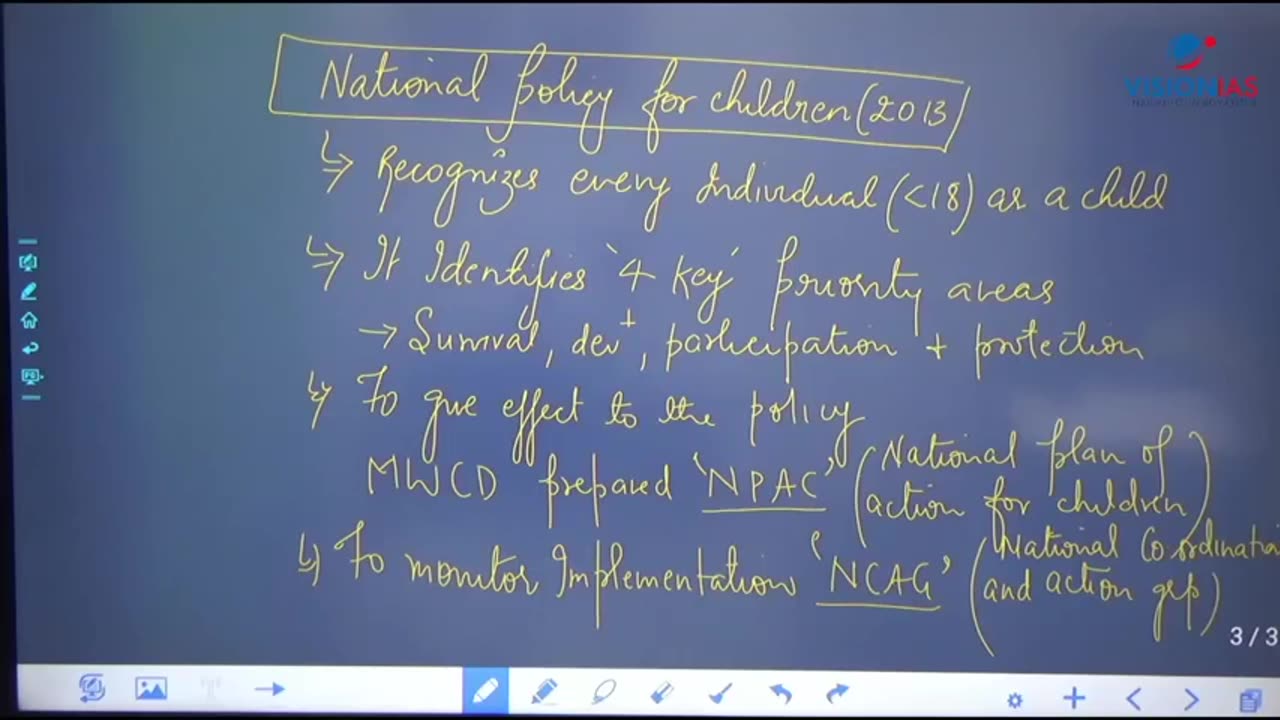 VISIONIAS
National Policy for children (2013)
↳ Recognizes every Individual (<18) as a child
↳ It Identifies '4 key' priority areas
→ Survival, dev+, participation + protection
↳ To give effect to the policy
MWCD prepared 'NPAC' (National plan of
action for children)
↳ To monitor Implementation 'NCAG' (National Co-ordination
and action grp)
3/3